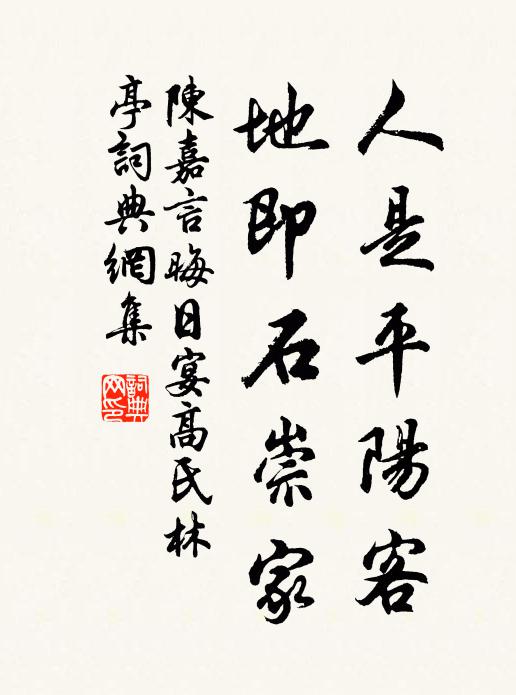 人是平陽客
地即石崇家
陳嘉言晦日宴高氏林
亭詞典網集
詞典
网印